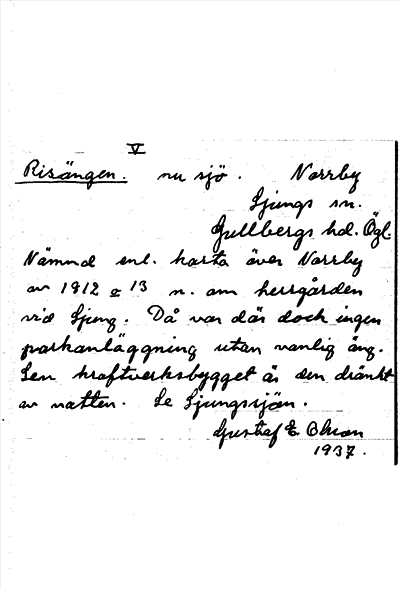 V
Risängen. nu sjö. Norrby
Ljungs sn.
Gullbergs hd. Ögl.
Nämnd enl. karta över Norrby
av 1912 o 13 n. om herrgården
vid Ljung. Då var där dock ingen
parkanläggning utan vanlig äng.
Sen kraftverksbygget är den dränkt
av vatten. Se Ljungssjön.
Gustaf E. Ohson
1937.